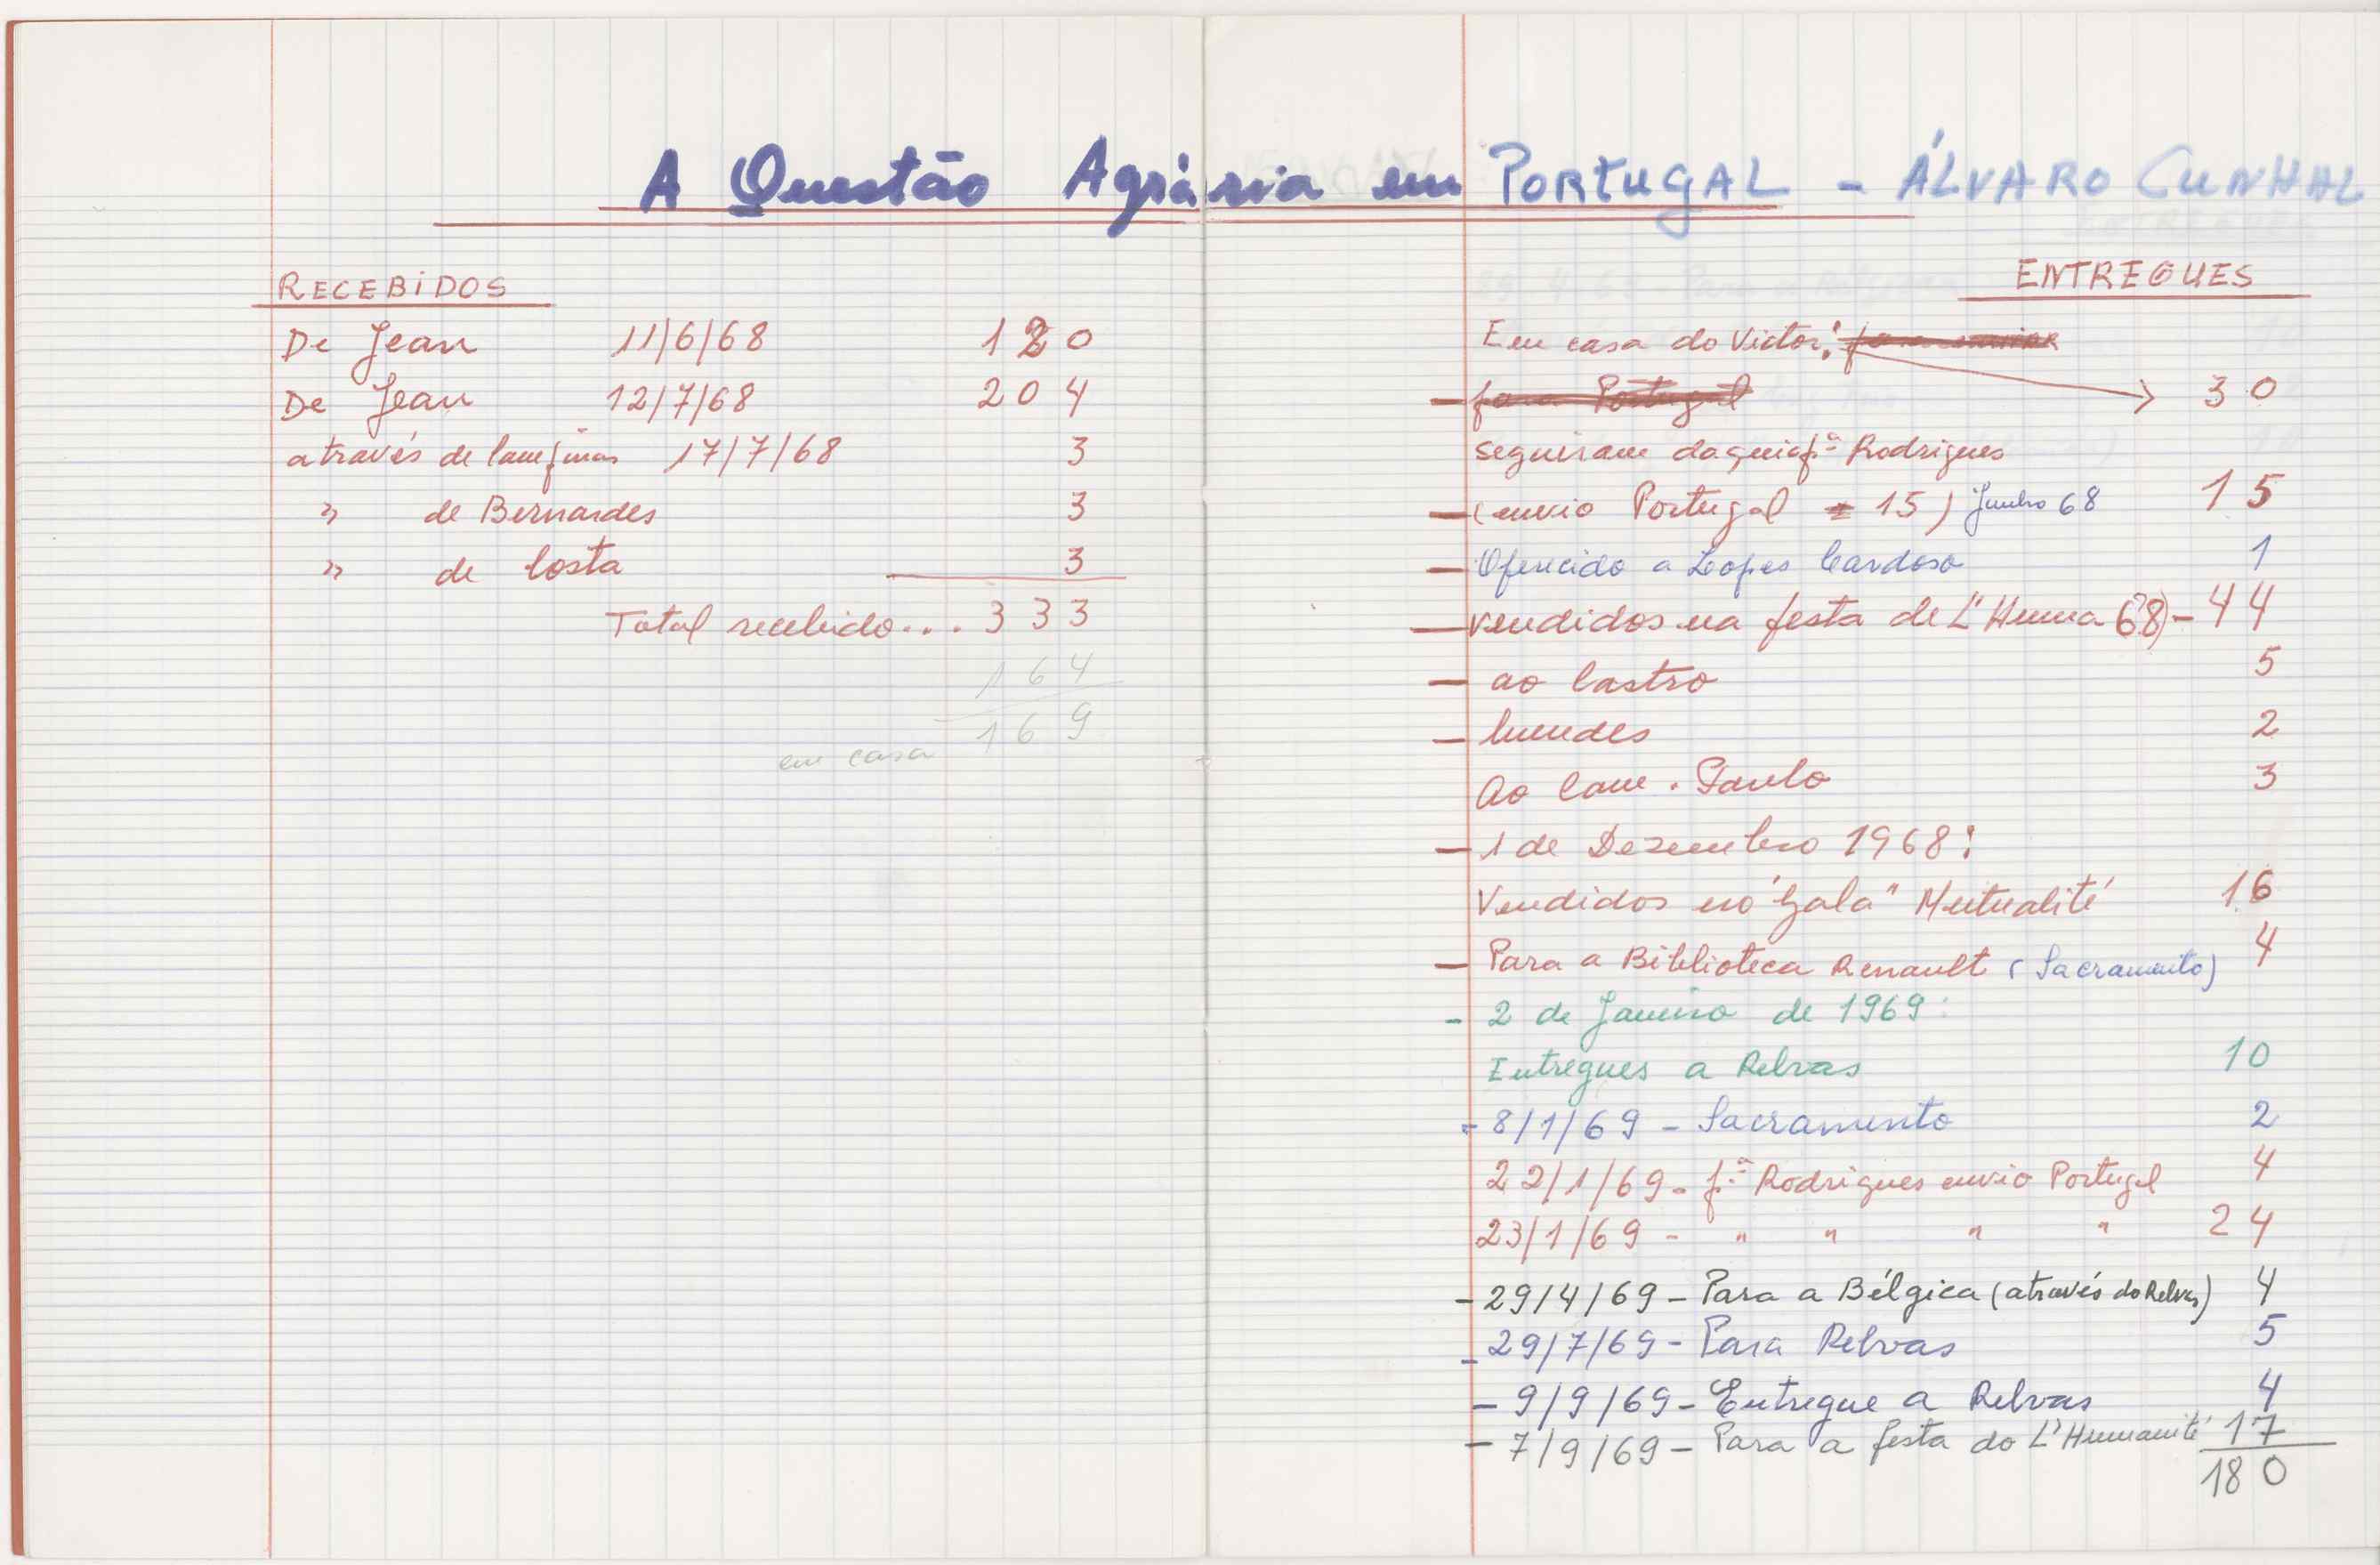 A Questão Agrária em PORTUGAL - ÁLVARO CUNHAL
RECEBIDOS
De Jean 11/6/68 120
De Jean 12/7/68 204
através de 17/7/68 3
" de Bernardes 3
" de Costa 3
Total recebido... 333
164
em casa 169
ENTREGUES
Em casa do Victor: para enviar
- para Portugal 30
seguiram daqui pª Rodrigues
- (envio Portugal 15) Junho 68 15
- Oferecido a Lopes Cardoso 1
- vendidos na festa de L'Huma (68) - 44
- ao Castro 5
- 2
Ao Cam. Paulo 3
- 1 de Dezembro 1968:
Vendidos no "Gala" Mutualité 16
- Para a Biblioteca Renault (Sacramento) 4
- 2 de Janeiro de 1969:
Entregues a Relvas 10
- 8/1/69 - Sacramento 2
22/1/69 - pª Rodrigues envio Portugal 4
23/1/69 - " " " " 24
- 29/4/69 - Para a Bélgica (através do Relvas) 4
- 29/7/69 - Para Relvas 5
- 9/9/69 - Entregue a Relvas 4
- 7/9/69 - Para a festa do L'Humanité 17
180